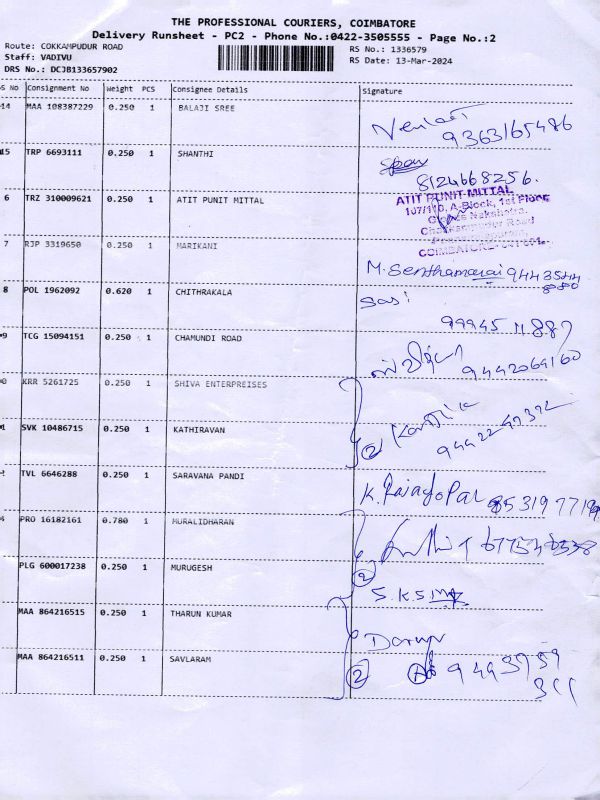 THE PROFESSIONAL COURIERS, COIMBATORE
Delivery Runsheet - PC2 - Phone No.:0422-3505555 - Page No.:2
Route: COKKAMPUDUR ROAD
Staff: VADIVU
DRS No.: DCJB133657902
RS No.: 1336579
RS Date: 13-Mar-2024
S No Consignment No Weight PCS Consignee Details Signature
14 MAA 108387229 0.250 1 BALAJI SREE
9363165486
15 TRP 6693111 0.250 1 SHANTHI
8124668256.
6 TRZ 310009621 0.250 1 ATIT PUNIT MITTAL
ATIT PUNIT MITTAL
107/110, A-Block, 1st Floor
7 RJP 3319650 0.250 1 MARIKANI
M. Senthamarai 9443544
8 POL 1962092 0.620 1 CHITHRAKALA
Sasi
99945 11887
9 TCG 15094151 0.250 1 CHAMUNDI ROAD
9442069160
0 KRR 5261725 0.250 1 SHIVA ENTERPREISES
1 SVK 10486715 0.250 1 KATHIRAVAN
2 Karthik
2 TVL 6646288 0.250 1 SARAVANA PANDI
K. Rajagopal
4 PRO 16182161 0.780 1 MURALIDHARAN
PLG 600017238 0.250 1 MURUGESH
2
MAA 864216515 0.250 1 THARUN KUMAR
MAA 864216511 0.250 1 SAVLARAM
2